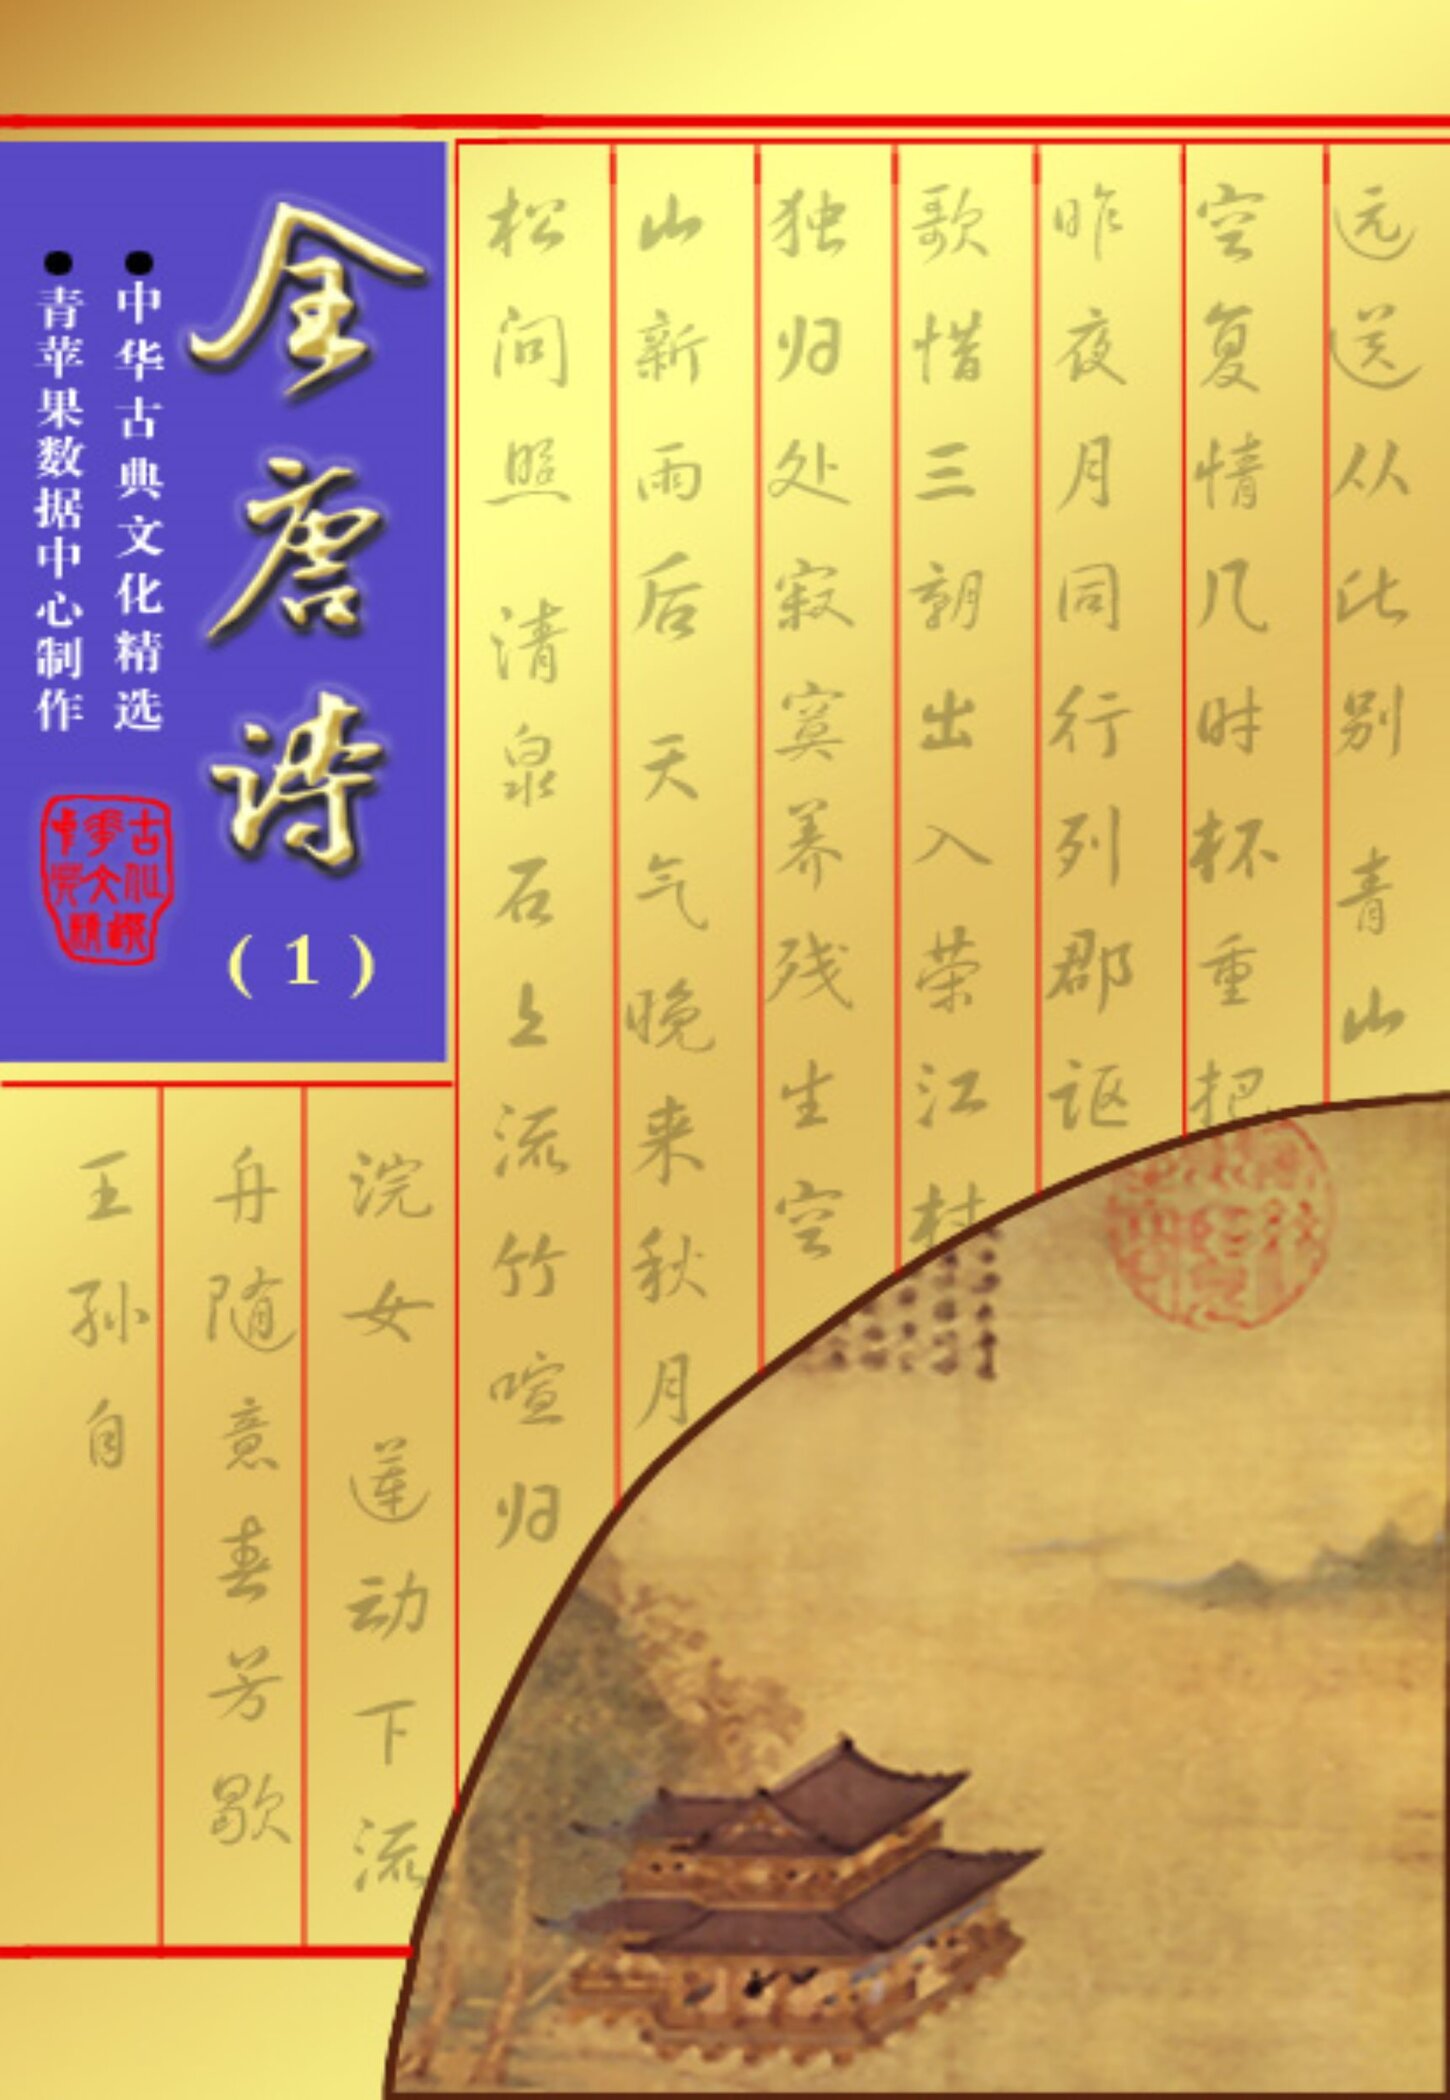 远送从此别 青山
空复情几时杯重把
昨夜月同行列郡讴
歌惜三朝出入荣江村
独归处寂寞养残生空
山新雨后天气晚来秋月
松间照 清泉石上流竹喧归
全唐诗
(1)
●中华古典文化精选
●青苹果数据中心制作
浣女 莲动下流
舟随意春芳歇
王孙自